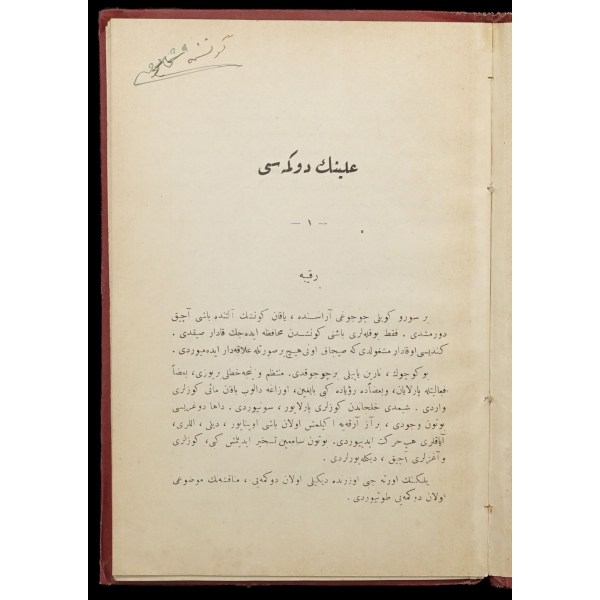 علینك دوكمه سی
— ١ —
رقیبه
بر سورو كویلی چوجوغی آراسنده ، یاقان كونشك آلتنده باشی آچیق
دورمشدی . فقط بوقله‌لری باشی كونشدن محافظه ایده‌جك قادار صیقدی .
كندیسی اوقادار مشغولدی كه صیجاق اونی هیچ بر صورتله علاقه‌دار ایده‌میوردی .
بو كوچوك ، نارین یاپیلی بر چوجوقدی . منتظم و نجه خطلی بر یوزی ، بعضاً
فعالیتله پارلایان ، وبعضاً ده رؤیاده كبی بایغین ، اوزاغه دالوب باقان مائی كوزلری
واردی . شیمدی خلجاندن كوزلری پارلایور ، سونیوردی . داها دوغریسی
بوتون وجودی ، بر آز آرقه‌یه اكیلمش اولان باشی اوینایور ، دیلی ، اللری ،
آیاقلری هپ حركت ایدییوردی . بوتون سامعین تسخیر ایدیلمش كبی ، كوزلری
و آغزلری آچیق ، دیكله‌یورلردی .
یلكنك اورته جی اوزرنده دیكیلی اولان دوكمه‌یی ، مناقشه‌نك موضوعی
اولان دوكمه‌یی طوتیوردی .